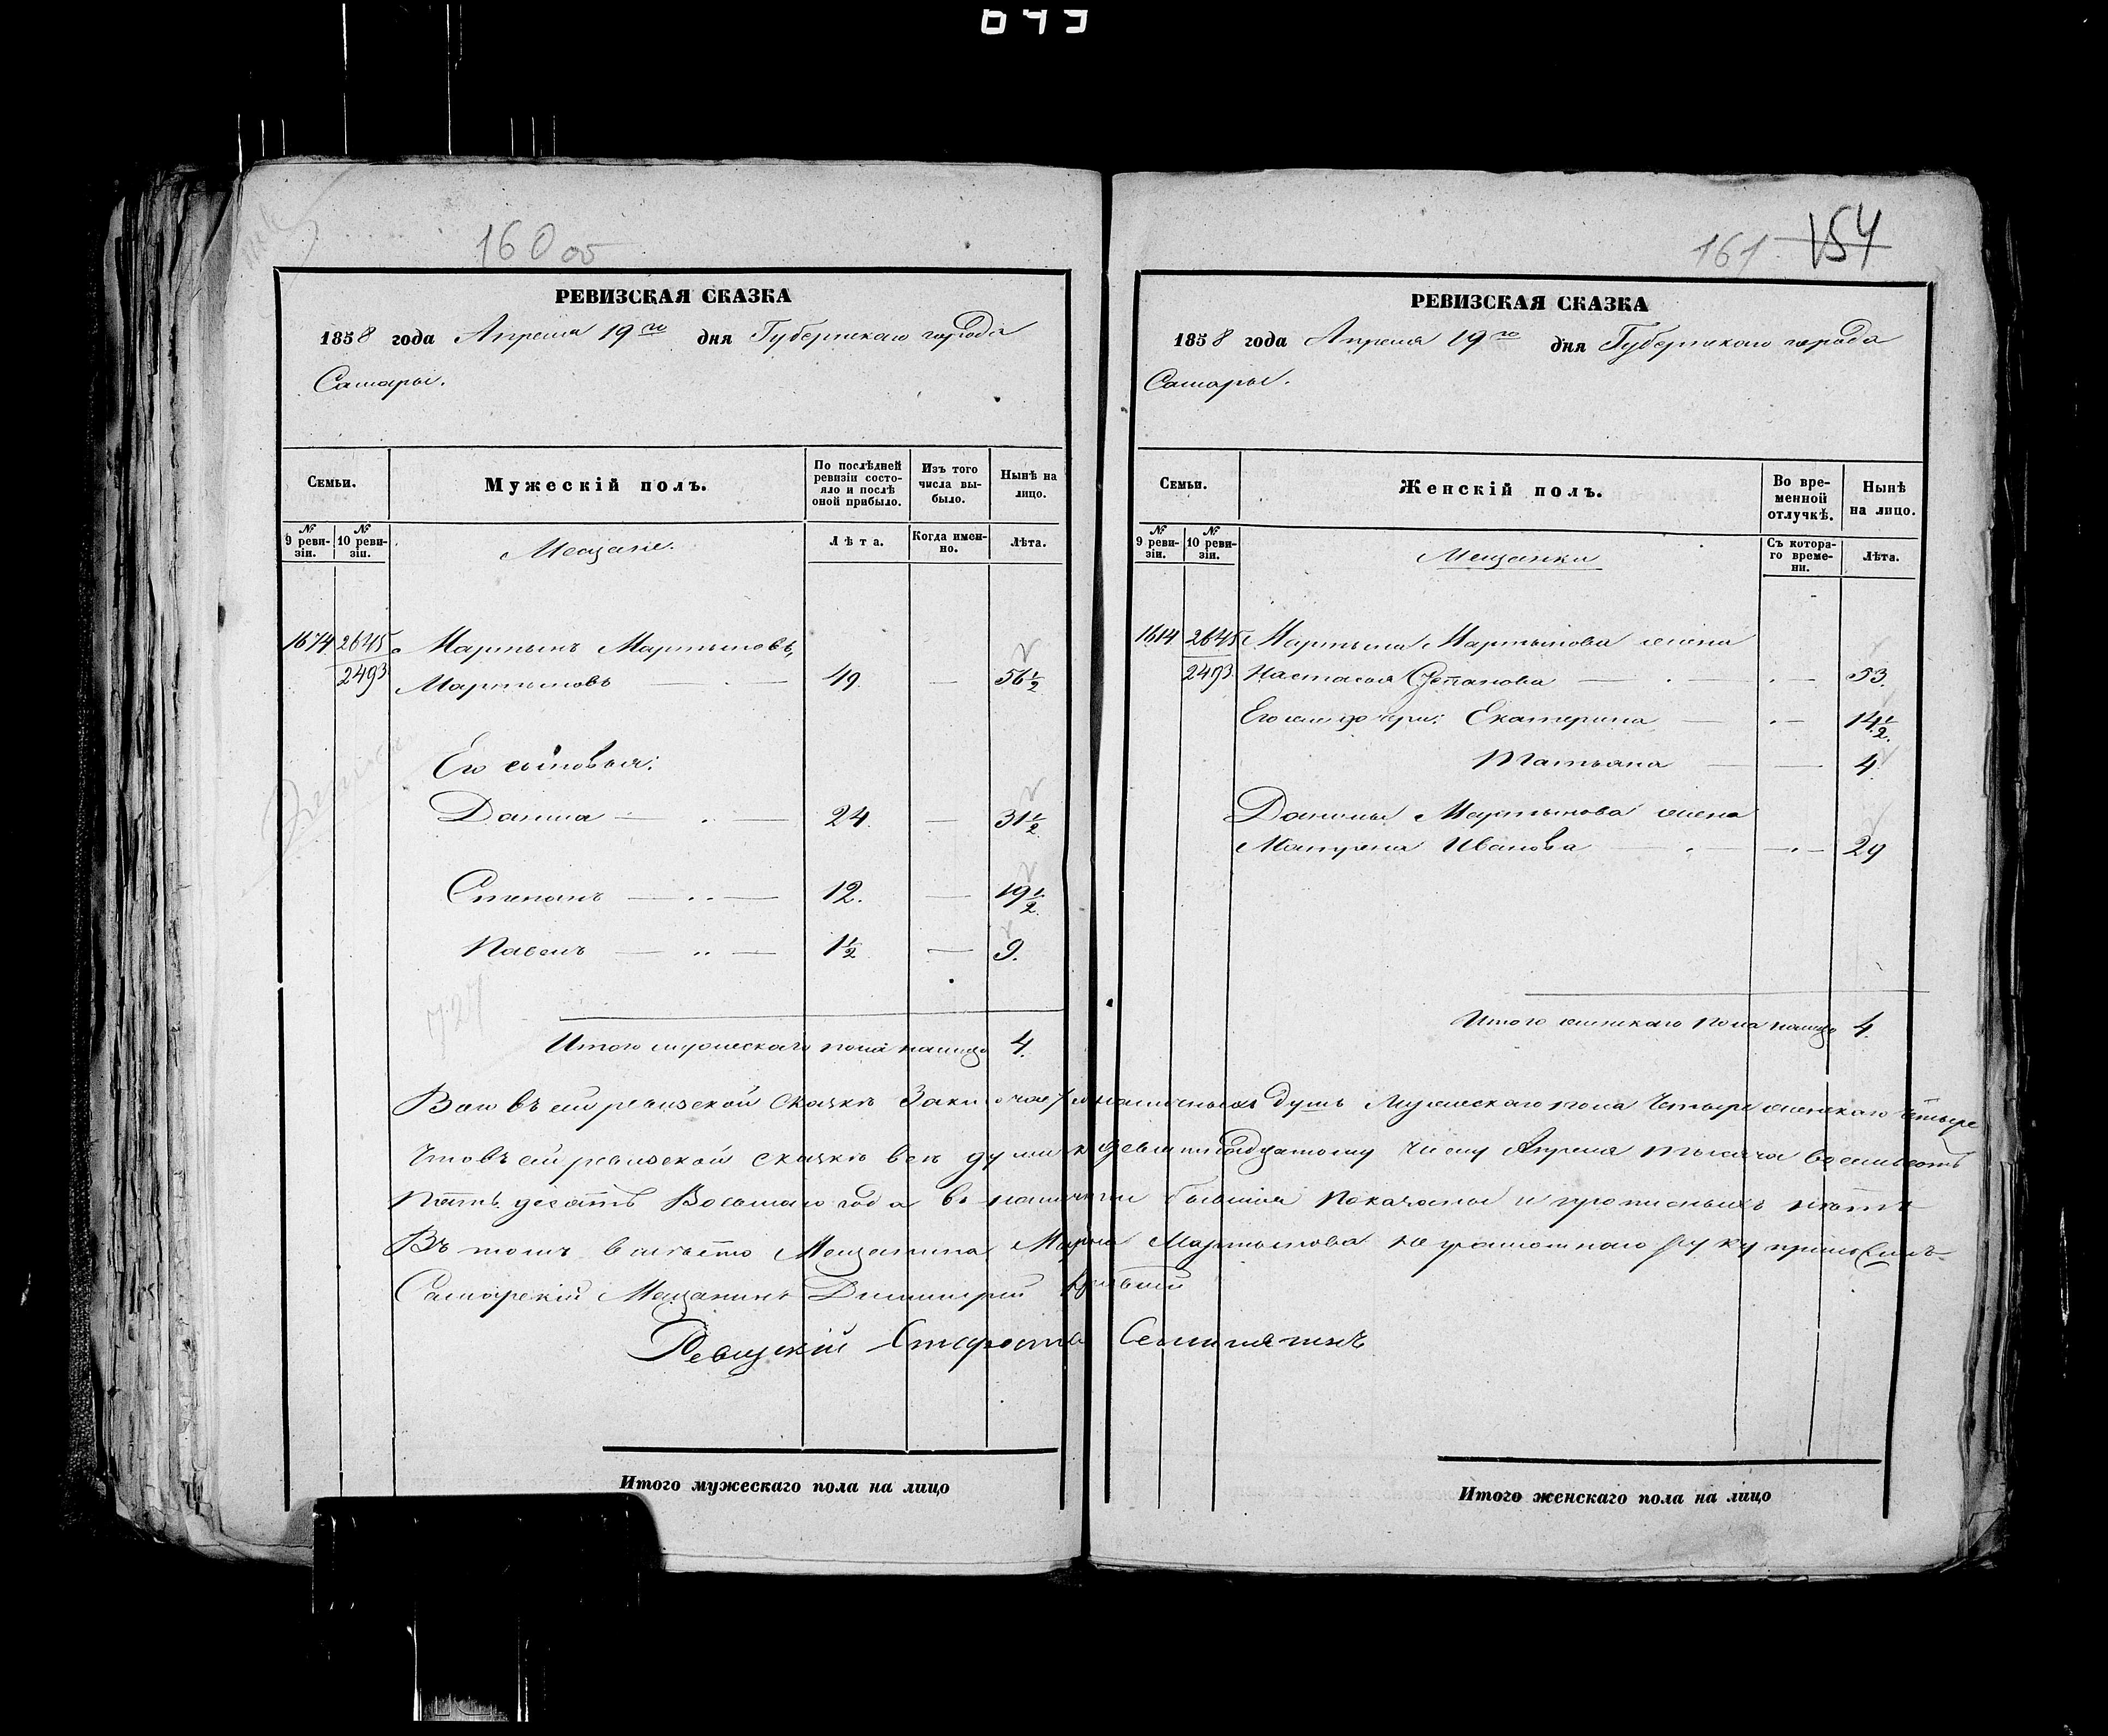 043
160 об
РЕВИЗСКАЯ СКАЗКА
1858 года Апреля 19го дня Губернскаго города
Самары.
Семьи.
Мужескій полъ.
По послѣдней ревизіи состояло и послѣ оной прибыло.
Изъ того числа выбыло.
Нынѣ на лицо.
№ 9 ревизіи.
№ 10 ревизіи.
Мещане.
Лѣта.
Когда именно.
Лѣта.
1674 2645 Мартынъ Мартыновъ,
2493 Мартыновъ — 49 — 56 1/2
Его сыновья:
Данила — 24. — 31 1/2
Степанъ — 12. — 19 1/2
Павелъ — 1 1/2 — 9.
Итого мужескаго пола налицо 4.
161 154
РЕВИЗСКАЯ СКАЗКА
1858 года Апреля 19го дня Губернскаго города
Самары.
Семьи.
Женскій полъ.
Во временной отлучкѣ.
Нынѣ на лицо.
№ 9 ревизіи.
№ 10 ревизіи.
Мещанки
Съ котораго времени.
Лѣта.
1614 2645 Мартына Мартынова жена
2493 Настасья Степанова — 53.
Его же дочери: Екатерина — 14 1/2.
Татьяна — 4.
Данилы Мартынова жена
Матрена Иванова — 29
Итого женскаго пола налицо 4.
Всего въ сей ревизской сказкѣ заключается наличныхъ душъ Мужескаго пола Четыре женскаго четыре
Что въ сей ревизской сказкѣ всѣ души к девятнадцатому числу Апреля тысяча восемьсотъ
пять десятъ Восьмаго года въ наличіи бывшія показаны и прописныхъ нѣтъ
Въ томъ вместо Мещанина Мартынова неграмотнаго руку приложилъ
Самарскій Мещанинъ Димитрій
Староста
Итого мужескаго пола на лицо
Итого женскаго пола на лицо